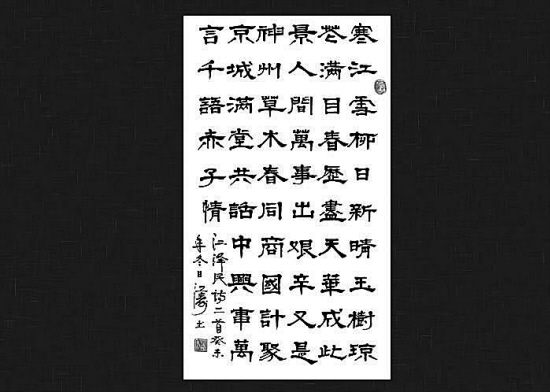 寒江雪柳日新晴玉樹琼
花滿目春歷盡天華成此
景人間萬事出艰辛又是
神州草木春同商國計聚
京城滿堂共話中興事萬
言千語赤子情
江泽民诗二首癸未
年冬日